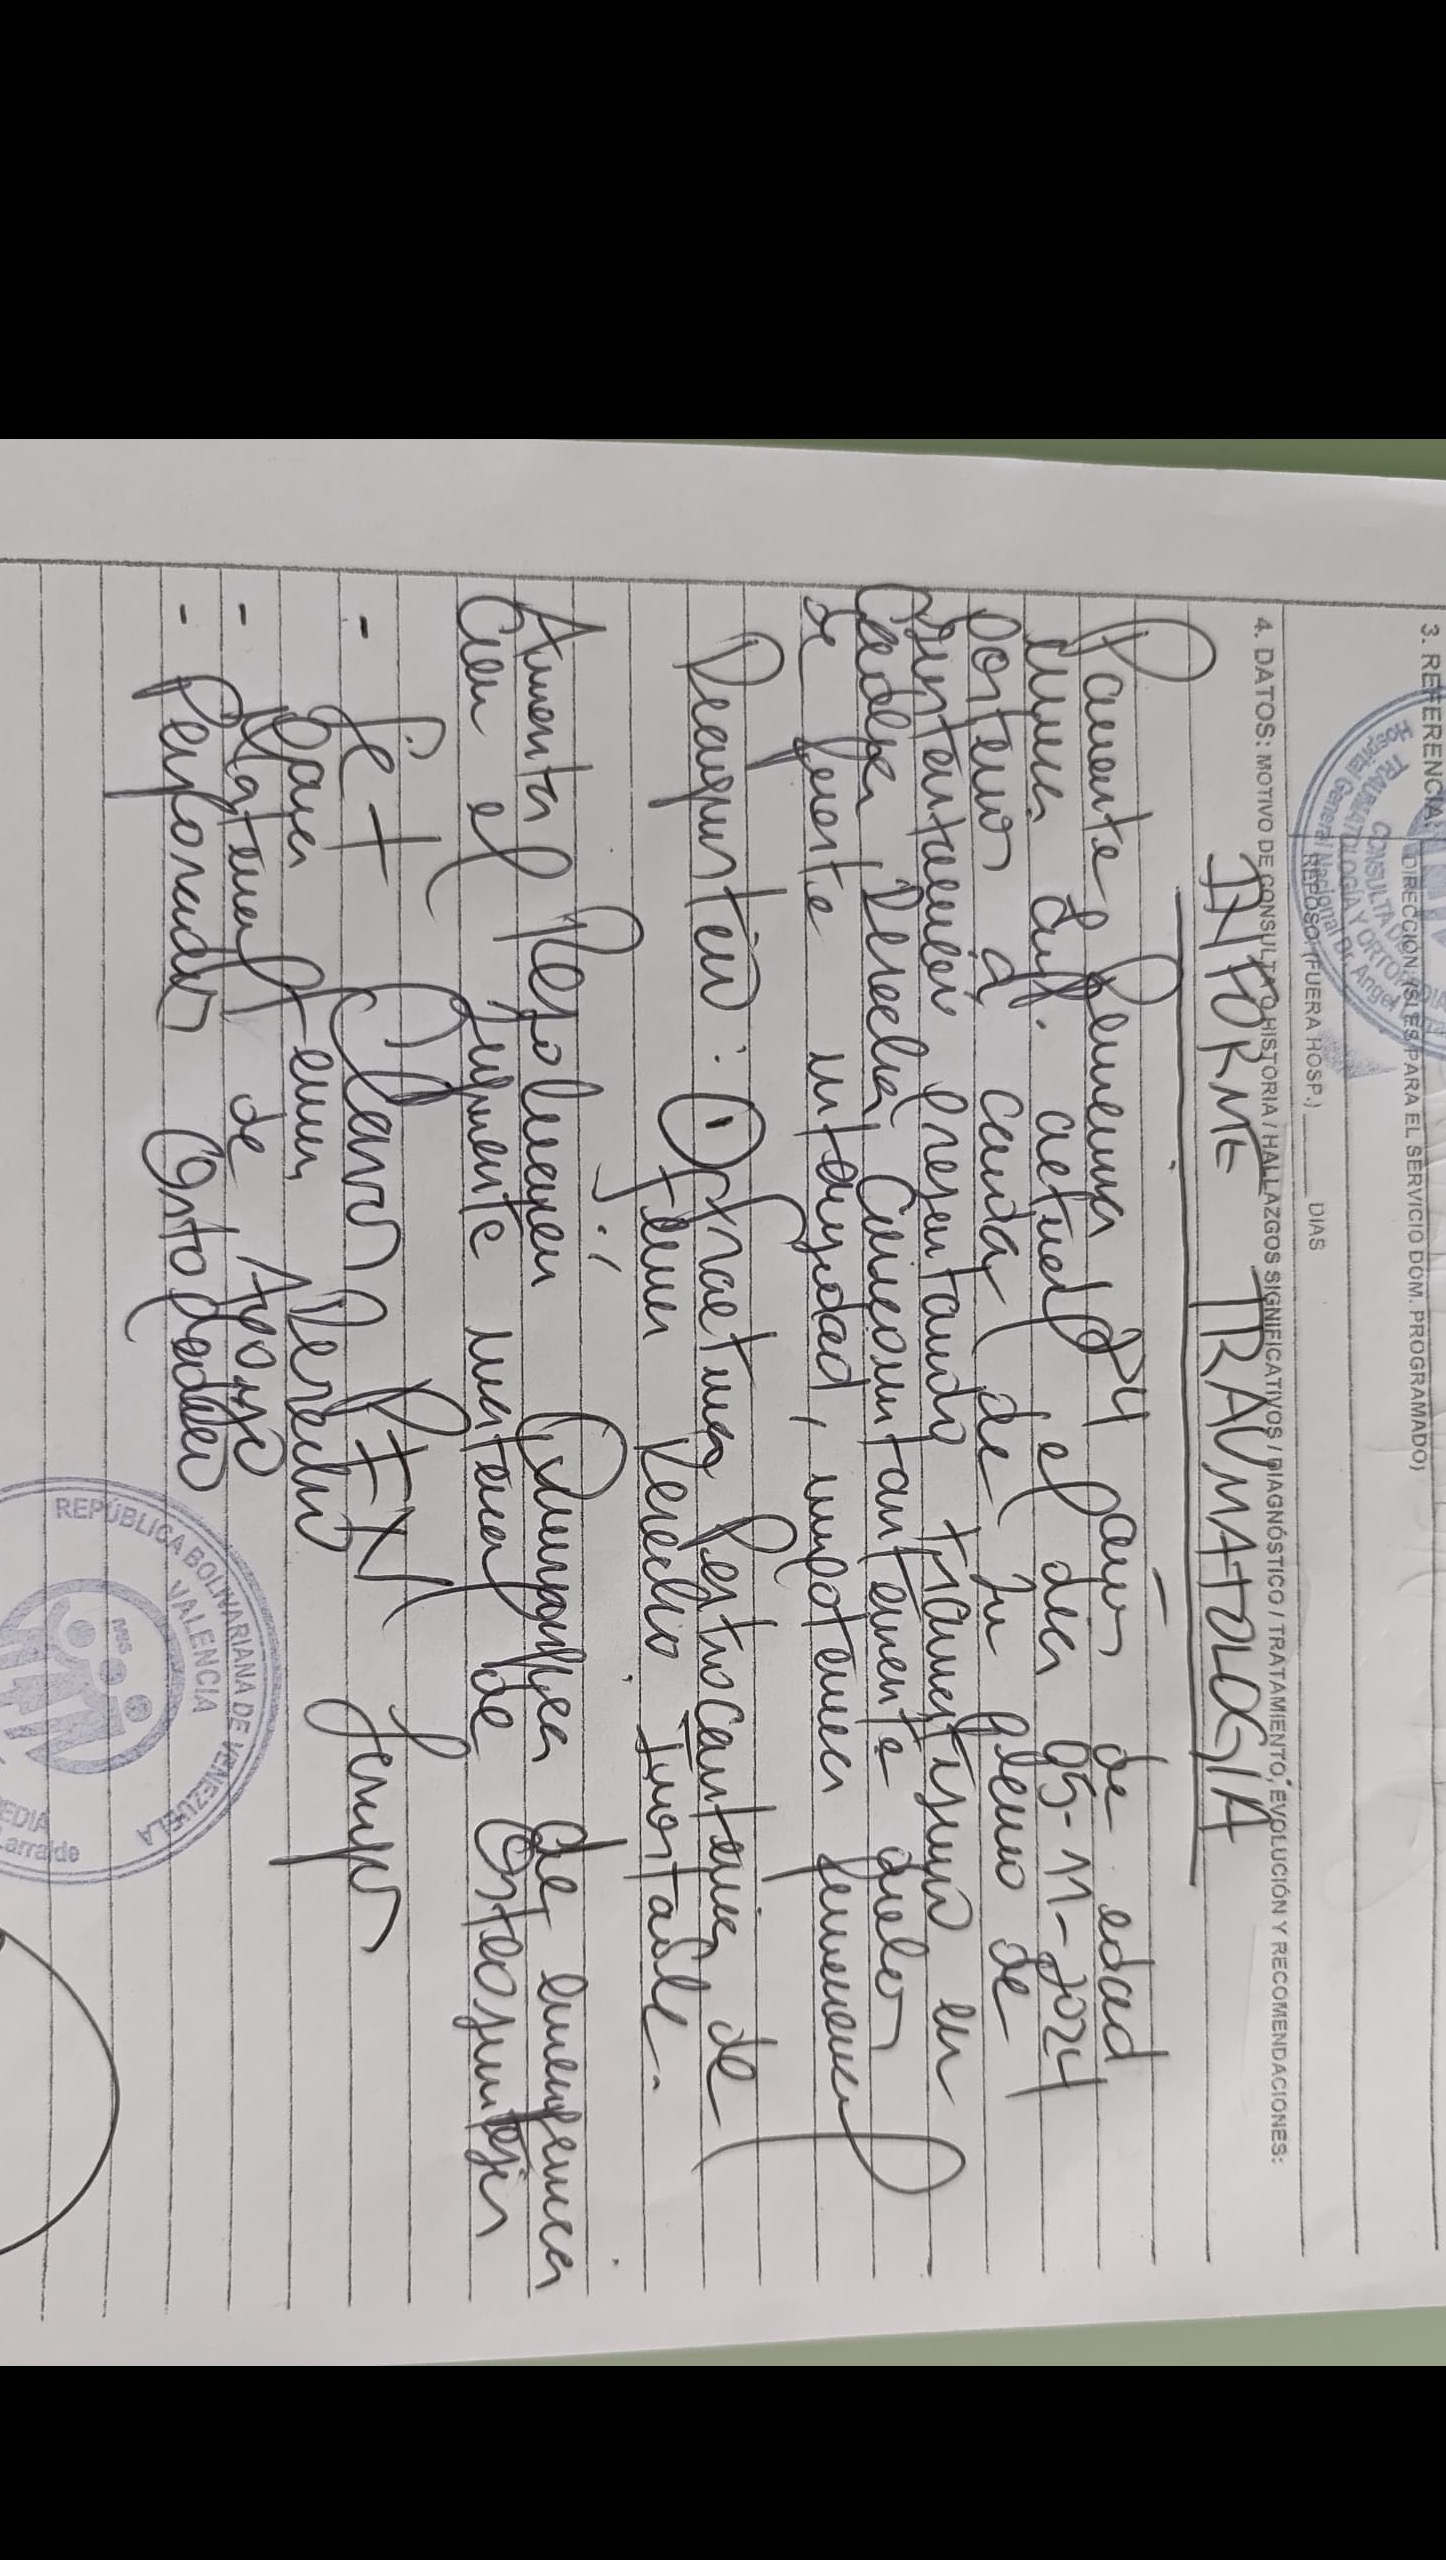 3. REFERENCIA:
DIRECCIÓN: (SI ES PARA EL SERVICIO DOM. PROGRAMADO)
REPOSO (FUERA HOSP.) ____ DIAS
CONSULTA DE
TRAUMATOLOGÍA Y ORTOPEDIA
Hospital General Nacional Dr. Angel
4. DATOS: MOTIVO DE CONSULTA O HISTORIA / HALLAZGOS SIGNIFICATIVOS / DIAGNÓSTICO / TRATAMIENTO, EVOLUCIÓN Y RECOMENDACIONES:
INFORME TRAUMATOLOGIA
Paciente femenina 84 años de edad
inicia enf. actual el dia 05-11-2024
Posterior a caida de su plano de
sustentación presentando traumatismo en
cadera derecha concomitantemente dolor
de fuerte intensidad, impotencia funcional
Diagnostico: ① fractura Pertrocanterica de
femur Derecho Inestable.
Amerita Resolución Quirurgica de emergencia
Con el siguiente material de Osteosintesis
- Set Clavo PFN largo
para femur Derecho
- Material de Apoyo
- Perforador Ortopedico
REPÚBLICA BOLIVARIANA DE VENEZUELA
VALENCIA